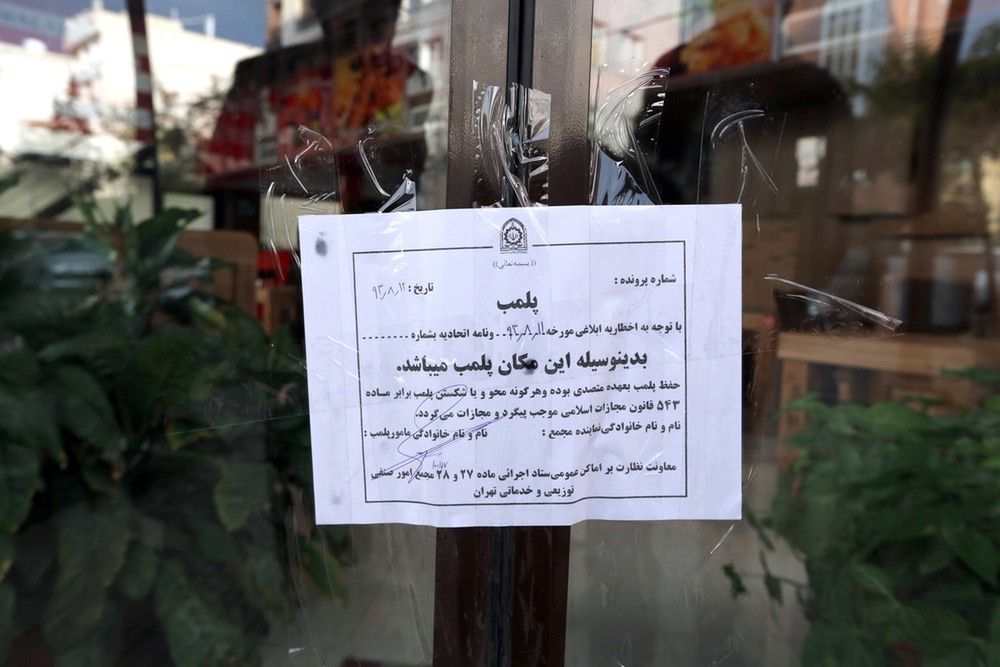 (( بسمه‌تعالی ))
شماره پرونده :
تاریخ : ۹۳٫۸٫۱۲
پلمب
با توجه به اخطاریه ابلاغی مورخه ۹۳٫۸٫۱۱ - - ونامه اتحادیه بشماره - - - - - - - -
بدینوسیله این مکان پلمب میباشد.
حفظ پلمب بعهده متصدی بوده وهرگونه محو و یا شکستن پلمب برابر ماده
۵۴۳ قانون مجازات اسلامی موجب پیگرد و مجازات می گردد.
نام و نام خانوادگی نماینده مجمع : نام و نام خانوادگی مامورپلمب :
معاونت نظارت بر اماکن عمومی ستاد اجرائی ماده ۲۷ و ۲۸ مجمع امور صنفی
توزیعی و خدماتی تهران